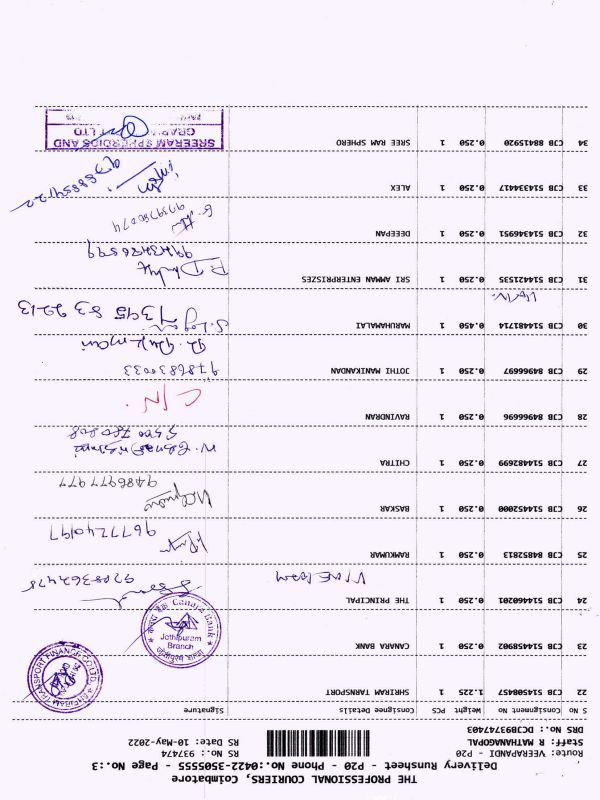 THE PROFESSIONAL COURIERS, Coimbatore
Delivery Runsheet - P20 - Phone No.:0422-3505555 - Page No.:3
Route: VEERAPANDI - P20 RS No.: 937474
Staff: R MATHANAGOPAL RS Date: 10-May-2022
DRS No.:
S No Consignment No Weight PCS Consignee Details Signature
22 CJB 514084657 1.225 1 SHRIRAM TARNSPORT
23 CJB 514458902 0.250 1 CANARA BANK Canara Bank Jothipuram Branch
24 CJB 514460201 0.250 1 THE PRINCIPAL
25 CJB 84852813 0.250 1 RAMKUMAR 9677240197
26 CJB 514452000 0.250 1 BASKAR 9486977977
27 CJB 514482699 0.250 1 CHITRA
28 CJB 84966696 0.250 1 RAVINDRAN C/N.
29 CJB 84966697 0.250 1 JOTHI MANIKANDAN 9786830033
30 CJB 514481714 0.450 1 MARUHAMALAI 7395 83 2213
31 CJB 514421535 0.250 1 SRI AMMAN ENTERPRISZES
32 CJB 514346951 0.250 1 DEEEPAN
33 CJB 514334417 0.250 1 ALEX
34 CJB 88415920 0.250 1 SREE RAM SPHERO